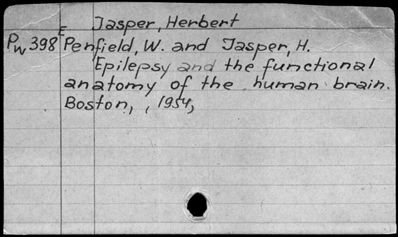 Jasper, Herbert
Pw 398 E Penfield, W. and Jasper, H.
Epilepsy and the functional
anatomy of the human brain.
Boston, , 1954,